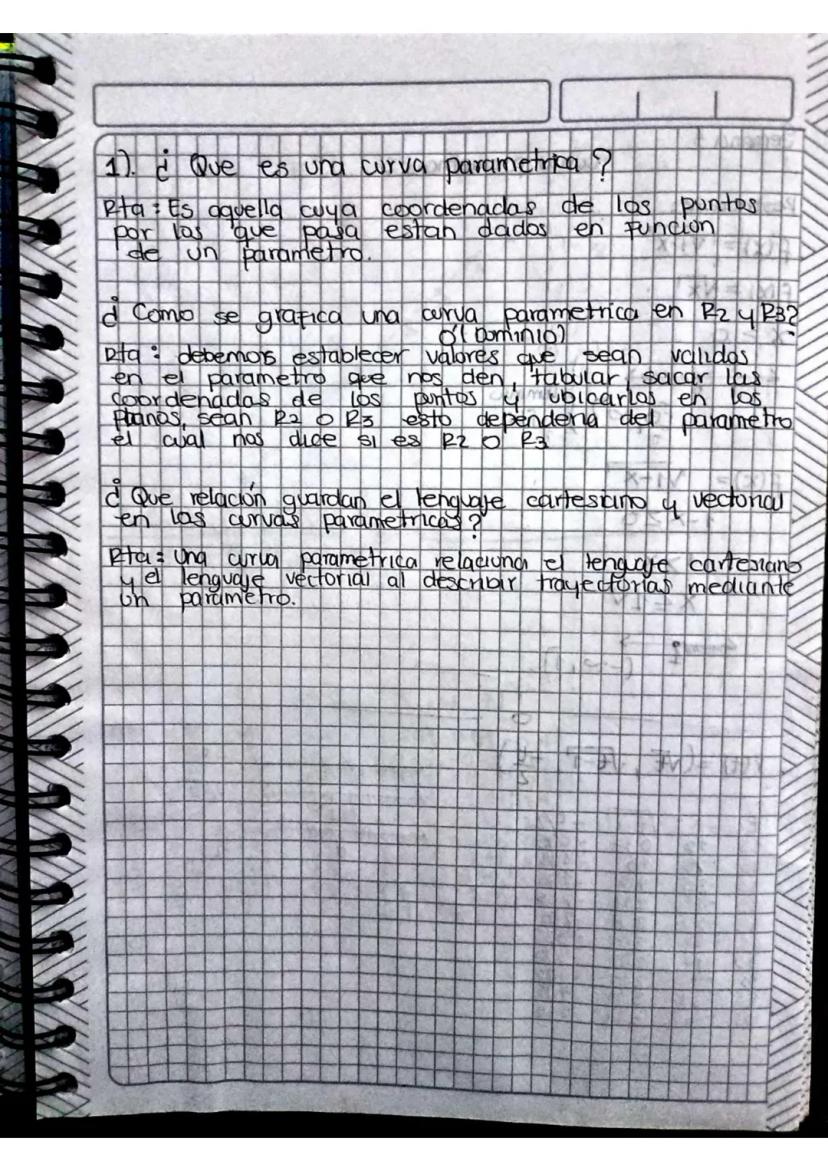 1). ¿ Que es una curva parametrica ?
Rta : Es aquella cuya coordenadas de los puntos
por los que pasa estan dados en función
de un parametro.
¿ Como se grafica una curva parametrica en R2 y R3?
o'(Dominio)
Rta : debemos establecer valores que sean validos
en el parametro que nos den, tabular, sacar las
coordenadas de los puntos y ubicarlos en los
planos, sean R2 o R3 esto dependeria del parametro
el cual nos dice si es R2 o R3
¿ Que relación guardan el lenguaje cartesiano y vectorial
en las curvas parametricas ?
Rta : Una curva parametrica relaciona el lenguaje cartesiano
y el lenguaje vectorial al describir trayectorias mediante
un parámetro.